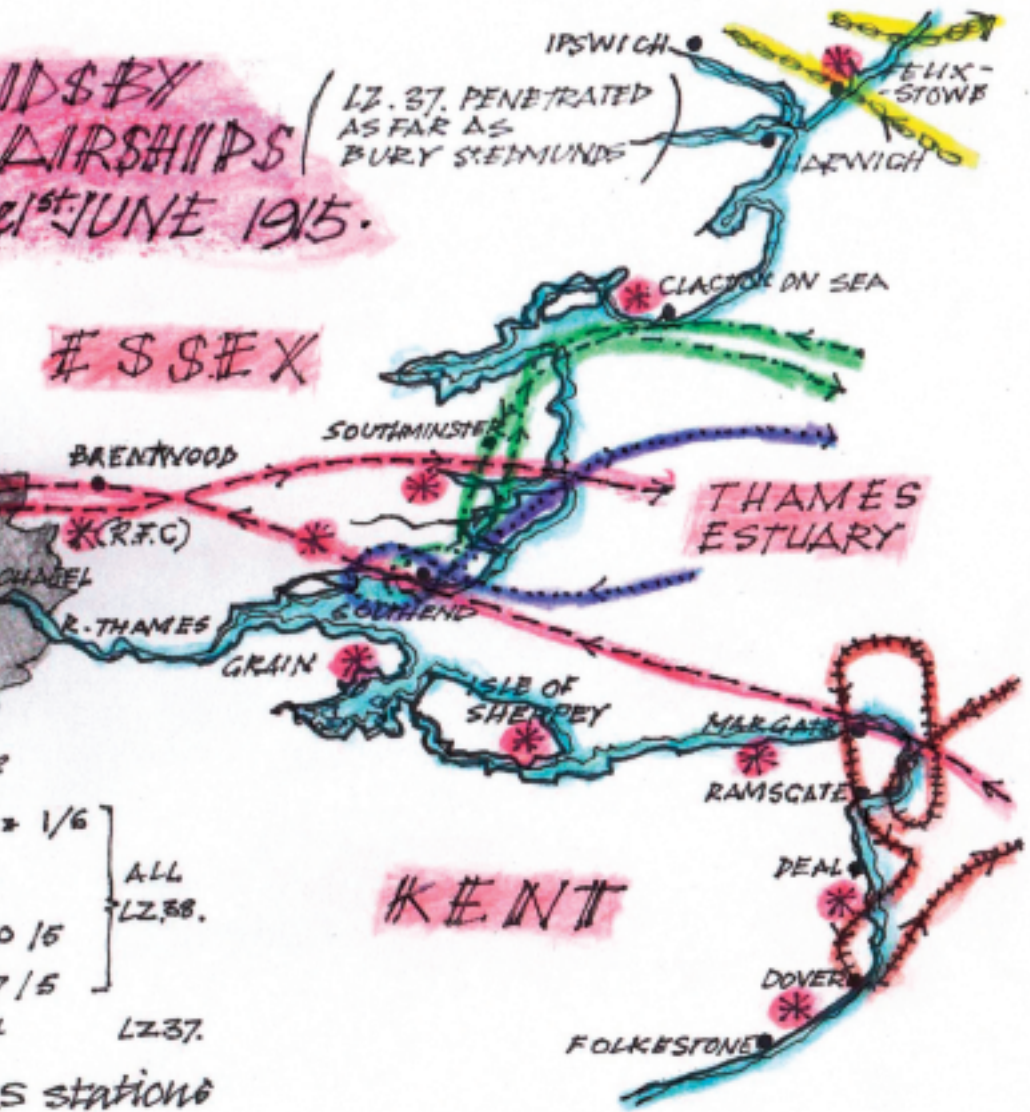 IDSBY
AIRSHIPS
21st. JUNE 1915.
(LZ.37. PENETRATED
AS FAR AS
BURY St. EDMUNDS)
IPSWICH
FELIX-
-STOWE
HARWICH
CLACTON ON SEA
ESSEX
SOUTHMINSTER
BRENTWOOD
(R.F.C)
THAMES
ESTUARY
R. THAMES
SOUTHEND
GRAIN
ISLE OF
SHEPPEY
MARGATE
RAMSGATE
1/6
ALL
LZ38.
KENT
DEAL
0/5
7/5
DOVER
LZ37.
FOLKESTONE
S stations